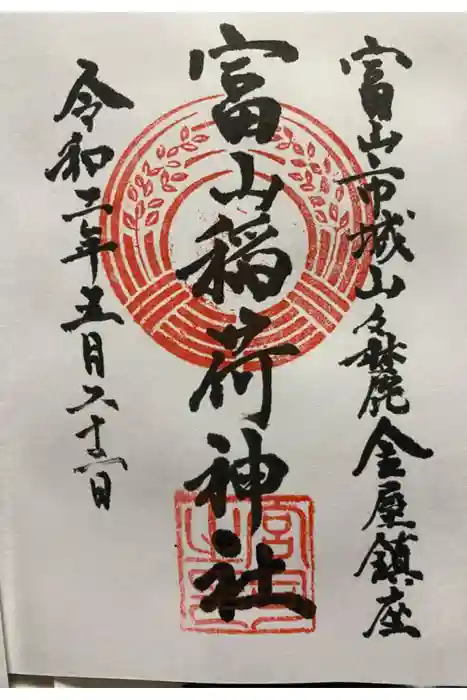 富山市城山々麓金屋鎮座
富山稲荷神社
令和二年五月二十一日